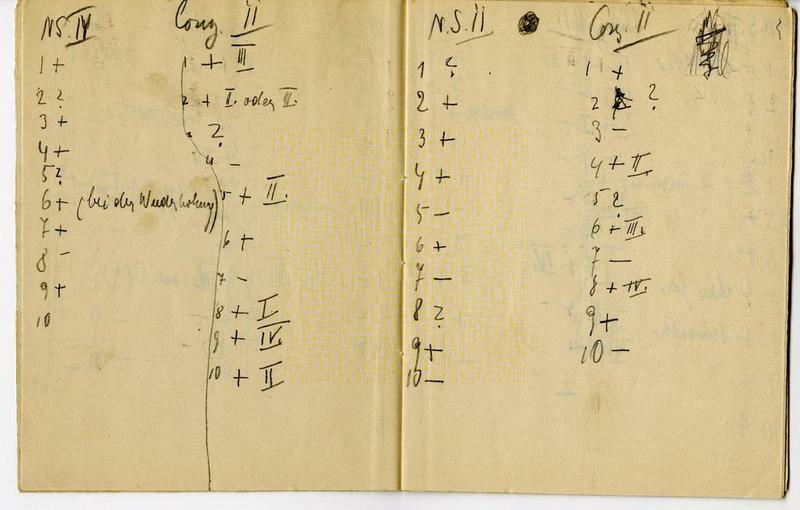 N.S. IV
1 +
2 ?
3 +
4 +
5 ?
6 + (bei der Wiederholung)
7 +
8 -
9 +
10
Cong. II
1 + III
2 + I. oder II.
3 ?
4 -
5 + II.
6 +
7 -
8 + I.
9 + IV.
10 + II
N.S. II
1 ?
2 +
3 +
4 +
5 -
6 +
7 -
8 ?
9 +
10 -
Cong. II
1 +
2 ?
3 -
4 + II.
5 ?
6 + III.
7 -
8 + IV.
9 +
10 -